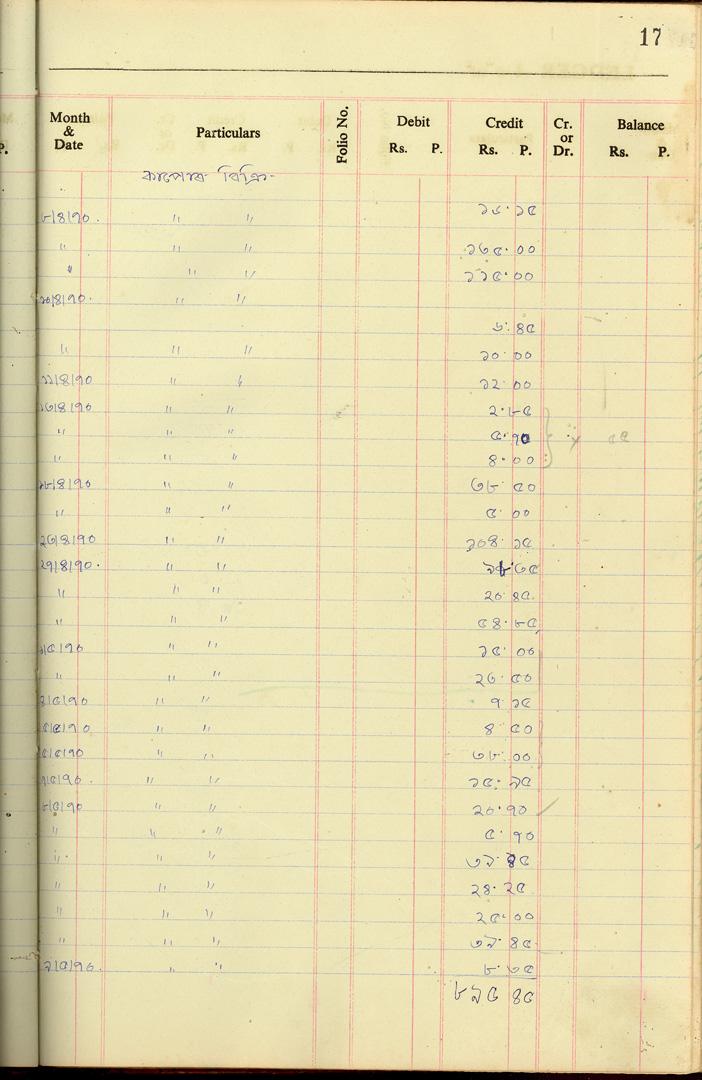 17
Month & Date Particulars Folio No. Debit Rs. P. Credit Rs. P. Cr. or Dr. Balance Rs. P.
P.
বিক্রি
৮|৪|৭০ " " ১৬.১৫
" " " ১৩৫.০০
" " " ১১৫.০০
১০|৪|৭০ " "
৬.৪৫
" " " ১০.০০
১১|৪|৭০ " " ১২.০০
১৩|৪|৭০ " " ২.৮৫
" " " ৫.৭০
" " " ৪.০০
১৮|৪|৭০ " " ৩৮.৫০
" " " ৫.০০
২৩|৪|৭০ " " ১০৪.১৫
২৭|৪|৭০ " " .৩৫
" " " ২০.৪৫
" " " ৫৪.৮৫
|৫|৭০ " " ১৫.০০
" " " ২৩.৫০
|৫|৭০ " " ৭.১৫
|৫|৭০ " " ৪.৫০
৫|৫|৭০ " " ৩৮.০০
৭|৫|৭০ " " ১৫.
৮|৫|৭০ " " ২০.৭০
" " " ৫.৭০
" " " ৩৯.৪৫
" " " ২৪.২৫
" " " ২৫.০০
" " " ৩৯.৪৫
৯|৫|৭০ " " ৮.৩৫
৮৯৫.৪৫